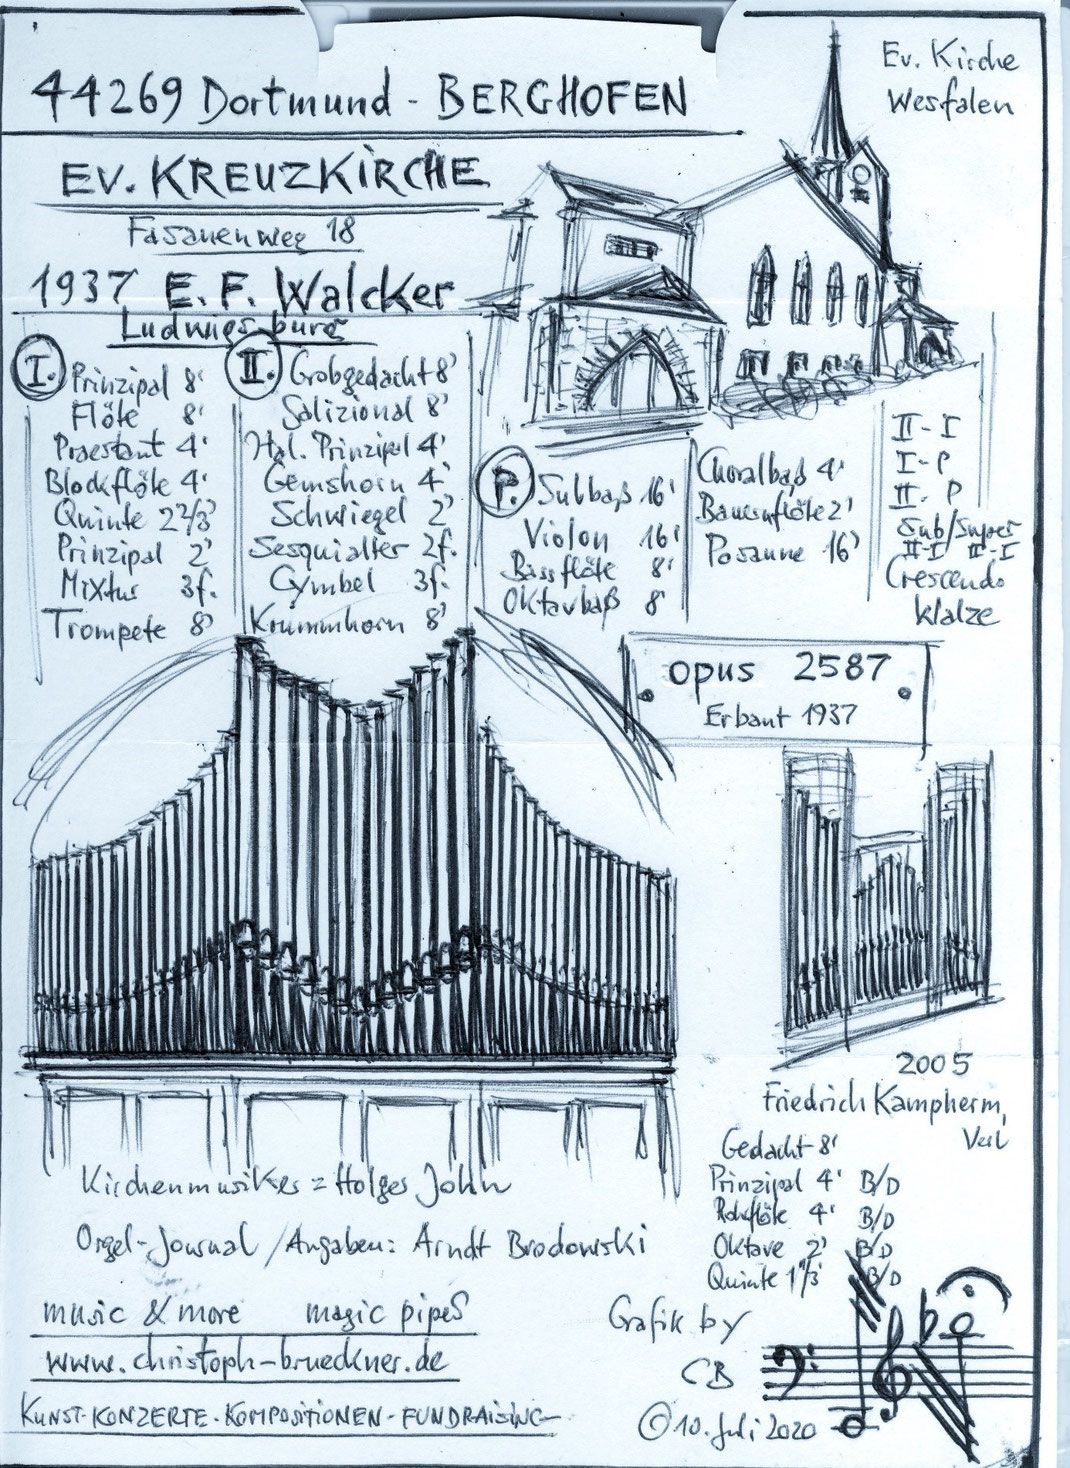 44269 Dortmund - BERGHOFEN
Ev. Kirche
Wesfalen
EV. KREUZKIRCHE
Fasanenweg 18
1937 E. F. Walcker
Ludwigsburg
I.
Prinzipal 8'
Flöte 8'
Praestant 4'
Blockflöte 4'
Quinte 2 2/3'
Prinzipal 2'
Mixtur 3f.
Trompete 8'
II.
Grobgedackt 8'
Salizional 8'
Hal. Prinzipal 4'
Gemshorn 4'
Schwiegel 2'
Sesquialter 2f.
Cymbel 3f.
Krummhorn 8'
P.
Subbaß 16'
Violon 16'
Bassflöte 8'
Oktavbaß 8'
Choralbaß 4'
Bauernflöte 2'
Posaune 16'
II - I
I - P
II - P
Sub/Super
II-I II-I
Crescendo
Walze
opus 2587
Erbaut 1937
2005
Friedrich Kampherm,
Verl
Gedackt 8'
Prinzipal 4' B/D
Rohrflöte 4' B/D
Oktave 2' B/D
Quinte 1 1/3' B/D
Kirchenmusiker = Holger John
Orgel-Journal / Angaben: Arndt Brodowski
music & more magic pipes
www.christoph-brueckner.de
KUNST-KONZERTE-KOMPOSITIONEN-FUNDRAISING
Grafik by
CB
© 10. Juli 2020